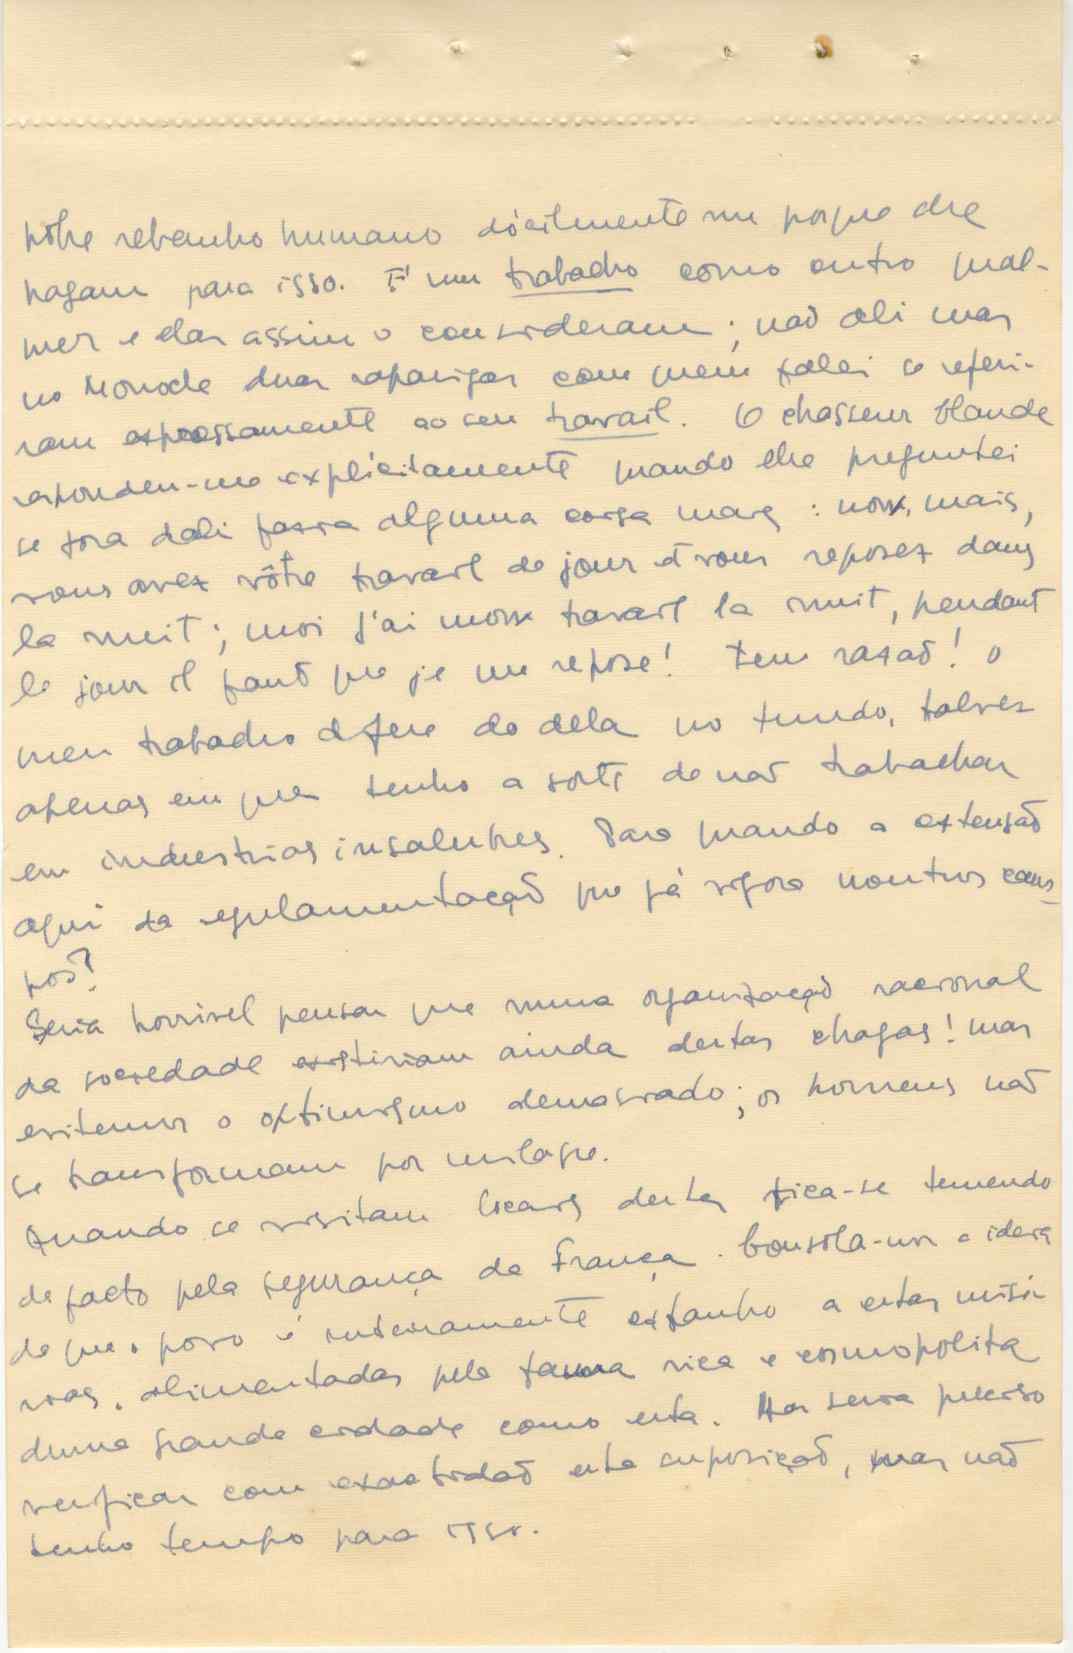 pobre rebanho humano dócilmente um porque lhe
pagam para isso. É um trabalho como outro qual-
quer e elas assim o consideram; não ali mas
no Monocle duas raparigas com quem falei se referi-
ram expressamente ao seu travail. O chasseur blonde
respondeu-me explicitamente quando lhe preguntei
se fora dali fazia alguma coisa mais: non, mais,
vous avez vôtre travail de jour et vous reposez dans
la nuit; moi j'ai mon travail la nuit, pendant
le jour il faut que je me repose! Tem razão! o
meu trabalho difere do dela no fundo, talvez
apenas em que tenho a sorte de não trabalhar
em industrias insalubres. Para quando a extensão
aqui da regulamentação que já vigora noutros cam-
pos?
Seria horrivel pensar que numa organização racional
da sociedade existiriam ainda destas chagas! mas
evitemos o optimismo demasiado; os homens não
se transformam por milagre.
Quando se visitam locais destes fica-se temendo
de facto pela segurança da França. Consola-nos a ideia
de que o povo é inteiramente extranho a estas misé-
rias, alimentadas pela fauna rica e cosmopolita
duma grande cidade como esta. Mas seria preciso
verificar com exactidão esta suposição, mas não
tenho tempo para isso.